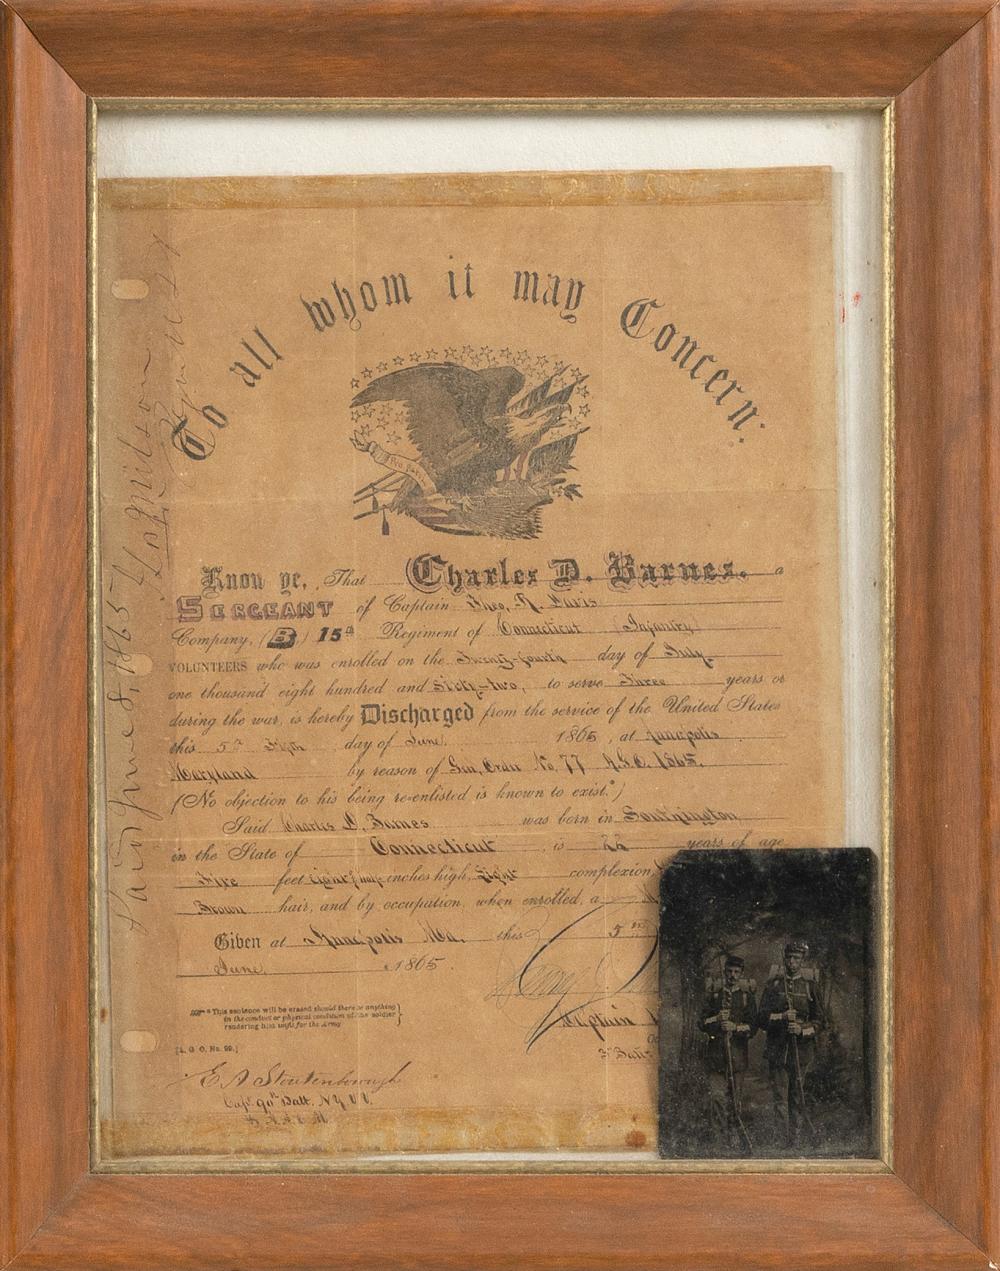 To all whom it may Concern:
Know ye, That Charles D. Barnes. a
SERGEANT of Captain Theo. R. Davis
Company, (B) 15th Regiment of Connecticut (Infantry)
VOLUNTEERS who was enrolled on the Twenty-fourth day of July
one thousand eight hundred and Sixty-two, to serve Three years or
during the war, is hereby Discharged from the service of the United States
this 5th day of June. 1865, at Annapolis
Maryland by reason of Gen. Order No. 77 A.G.O. 1865.
(No objection to his being re-enlisted is known to exist.*)
Said Charles D. Barnes was born in Southington
in the State of Connecticut, is 22 years of age
Five feet eight inches high, Light complexion,
Brown hair, and by occupation, when enrolled, a
Given at Annapolis Md. this 5th
June. 1865.
* This sentence will be erased should there be anything
in the conduct or physical condition of the soldier
rendering him unfit for the Army
[A. G. O. No. 99.]
Captain
E A Stoutenborough
Capt 90th Batt. NY VV.
Paid June 8, 1865